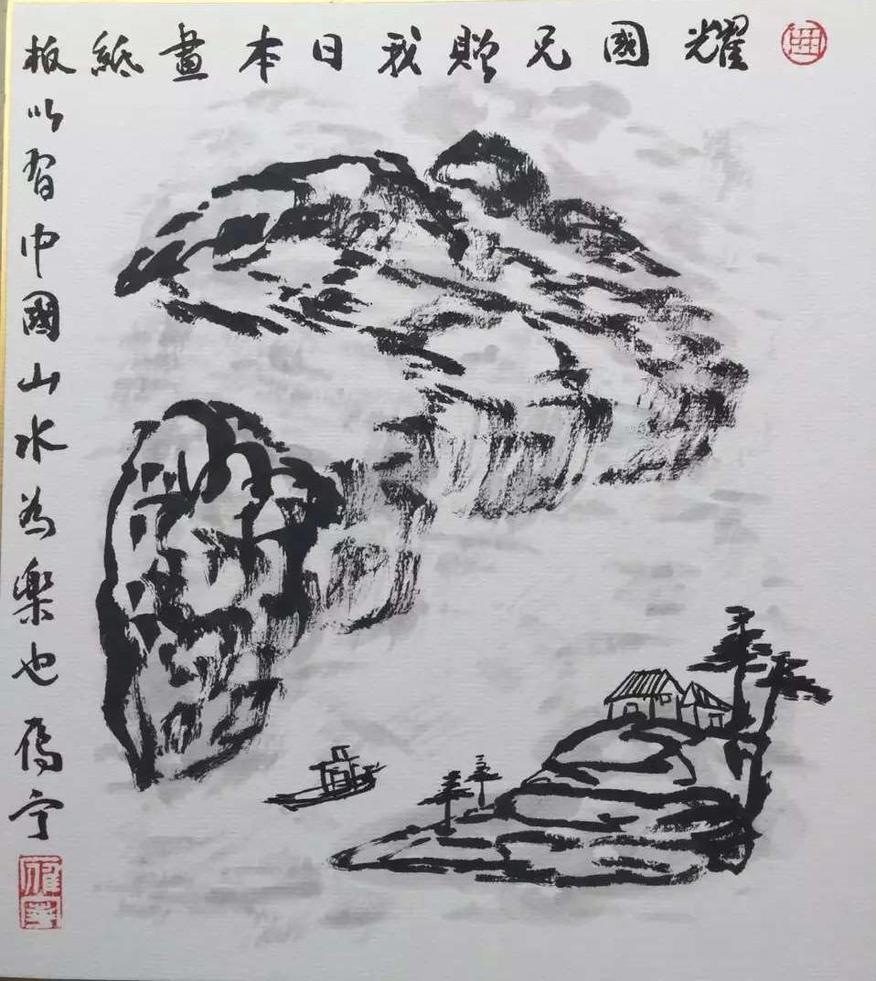 耀國兄贈我日本畫紙板
以習中國山水為樂也 雁宁